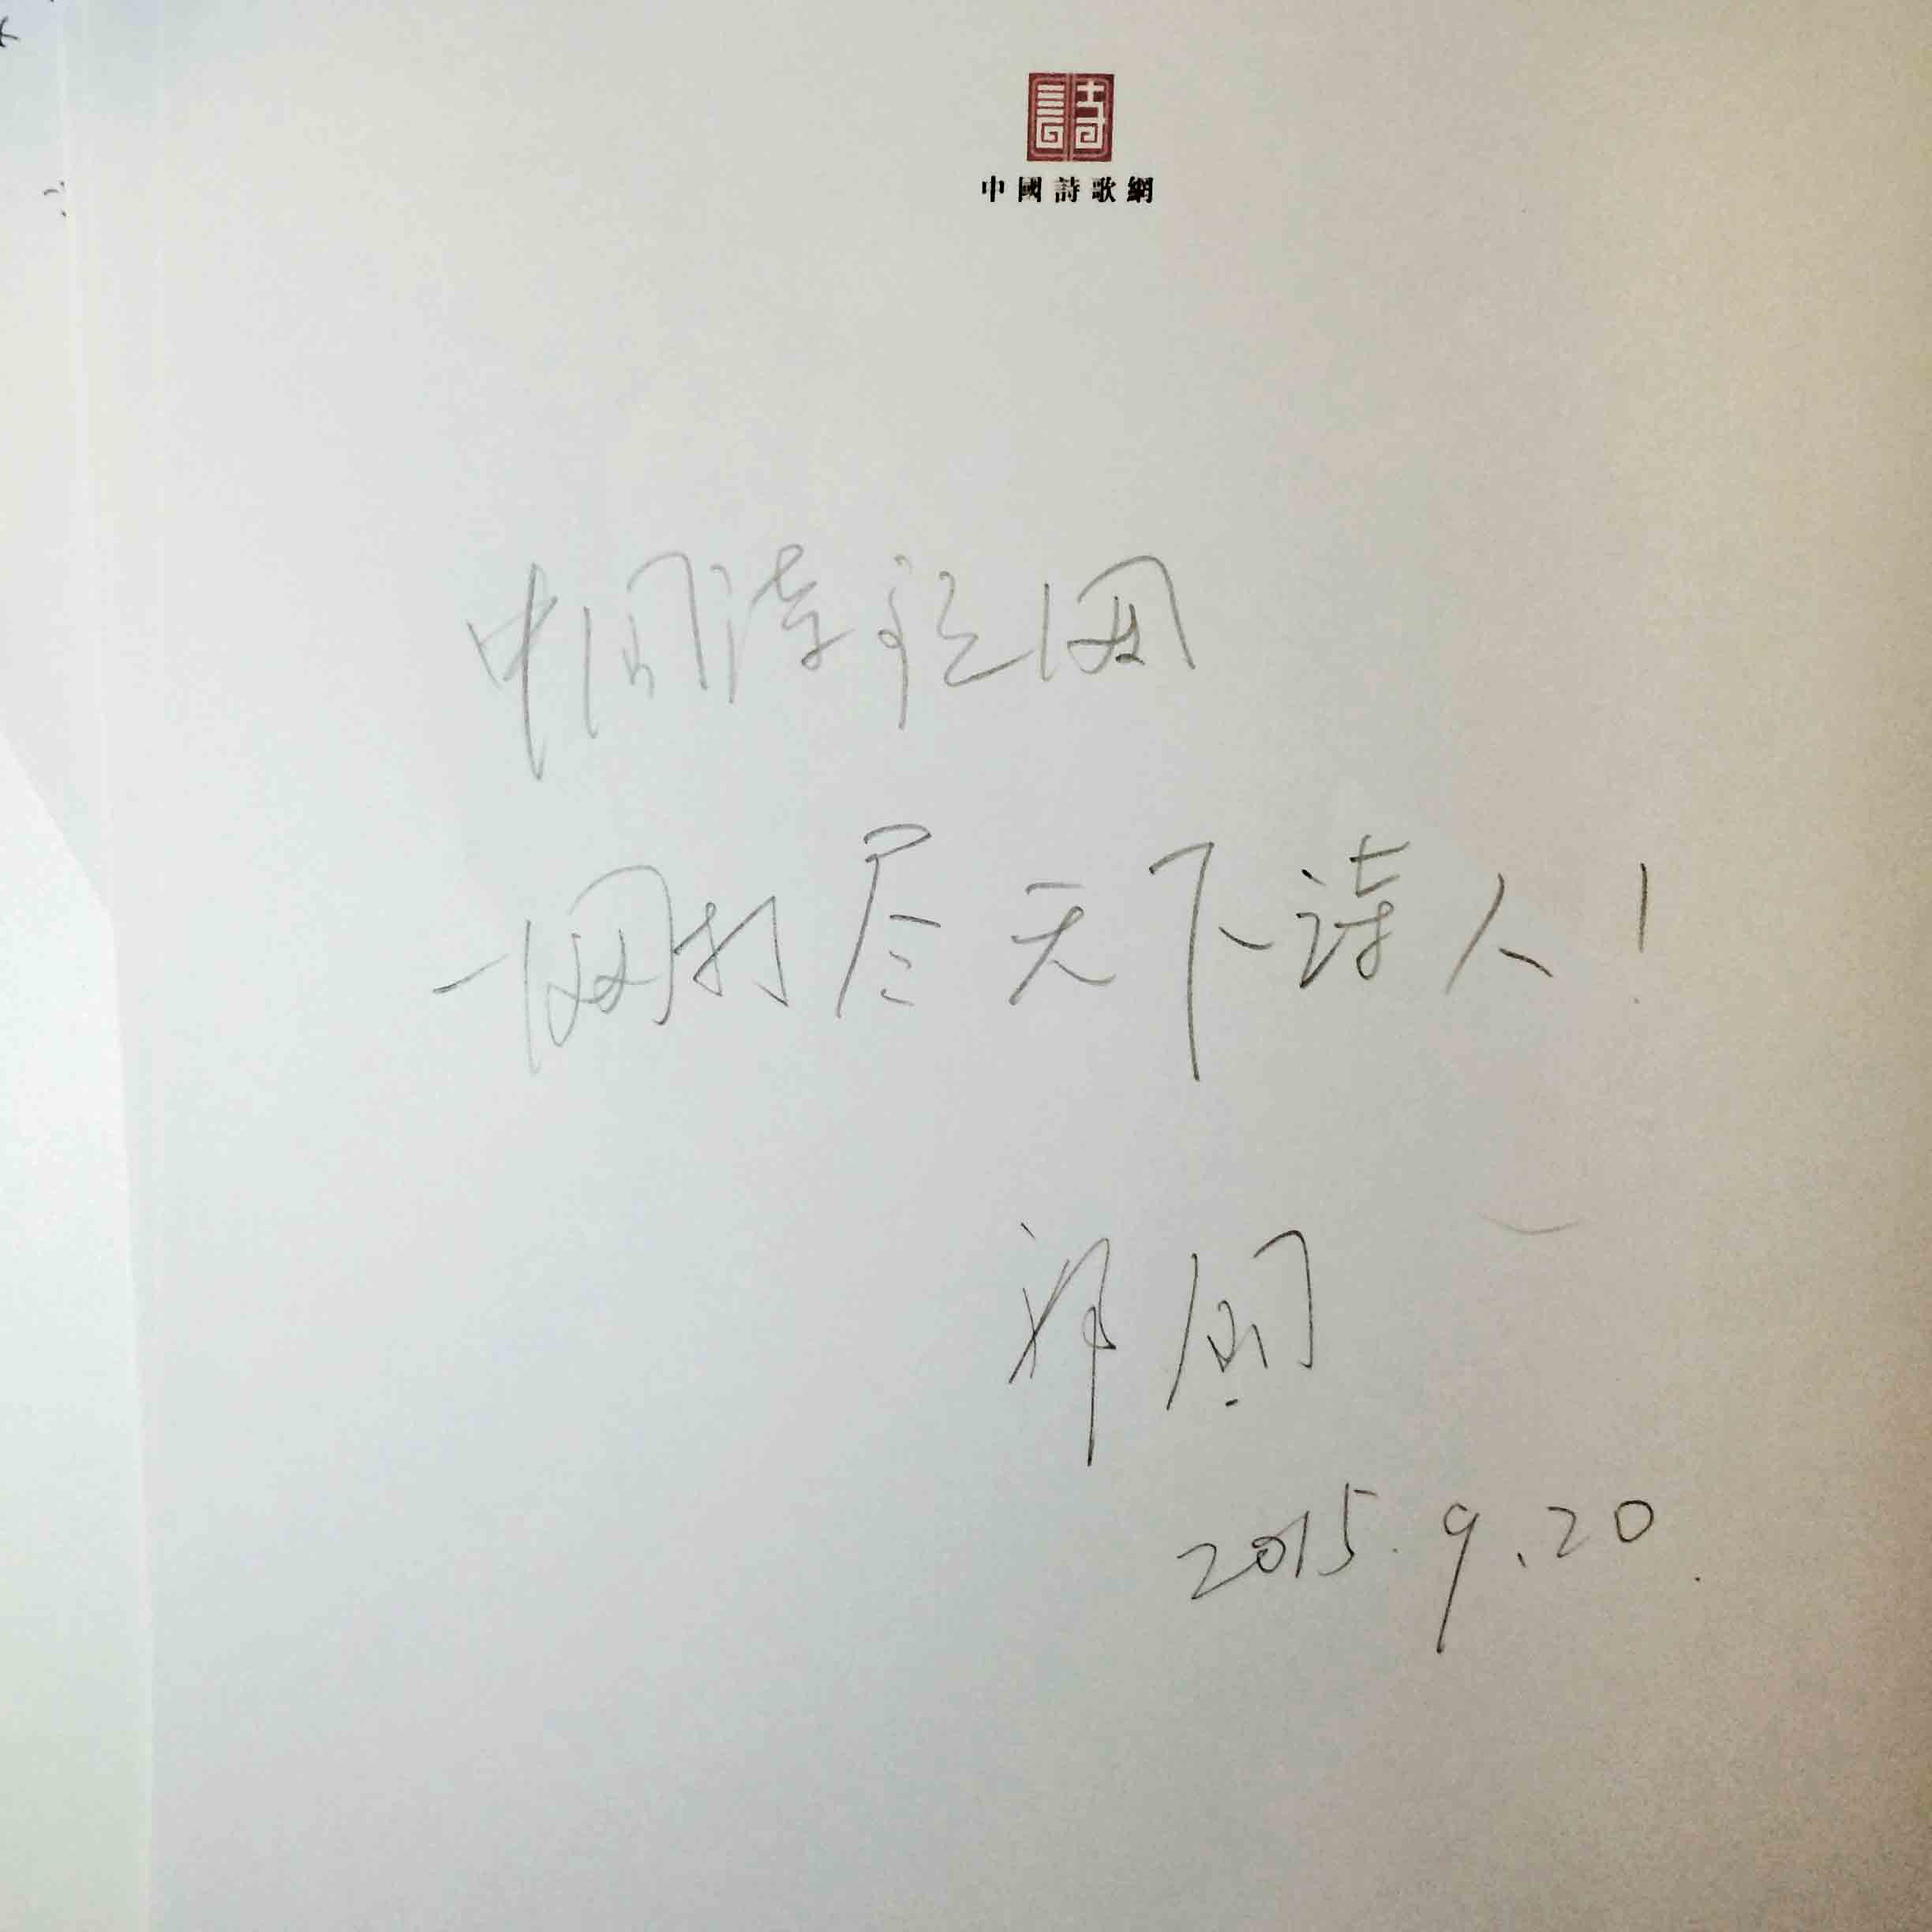 詩
中國詩歌網
中国诗歌网
一网打尽天下诗人！
2015.9.20.